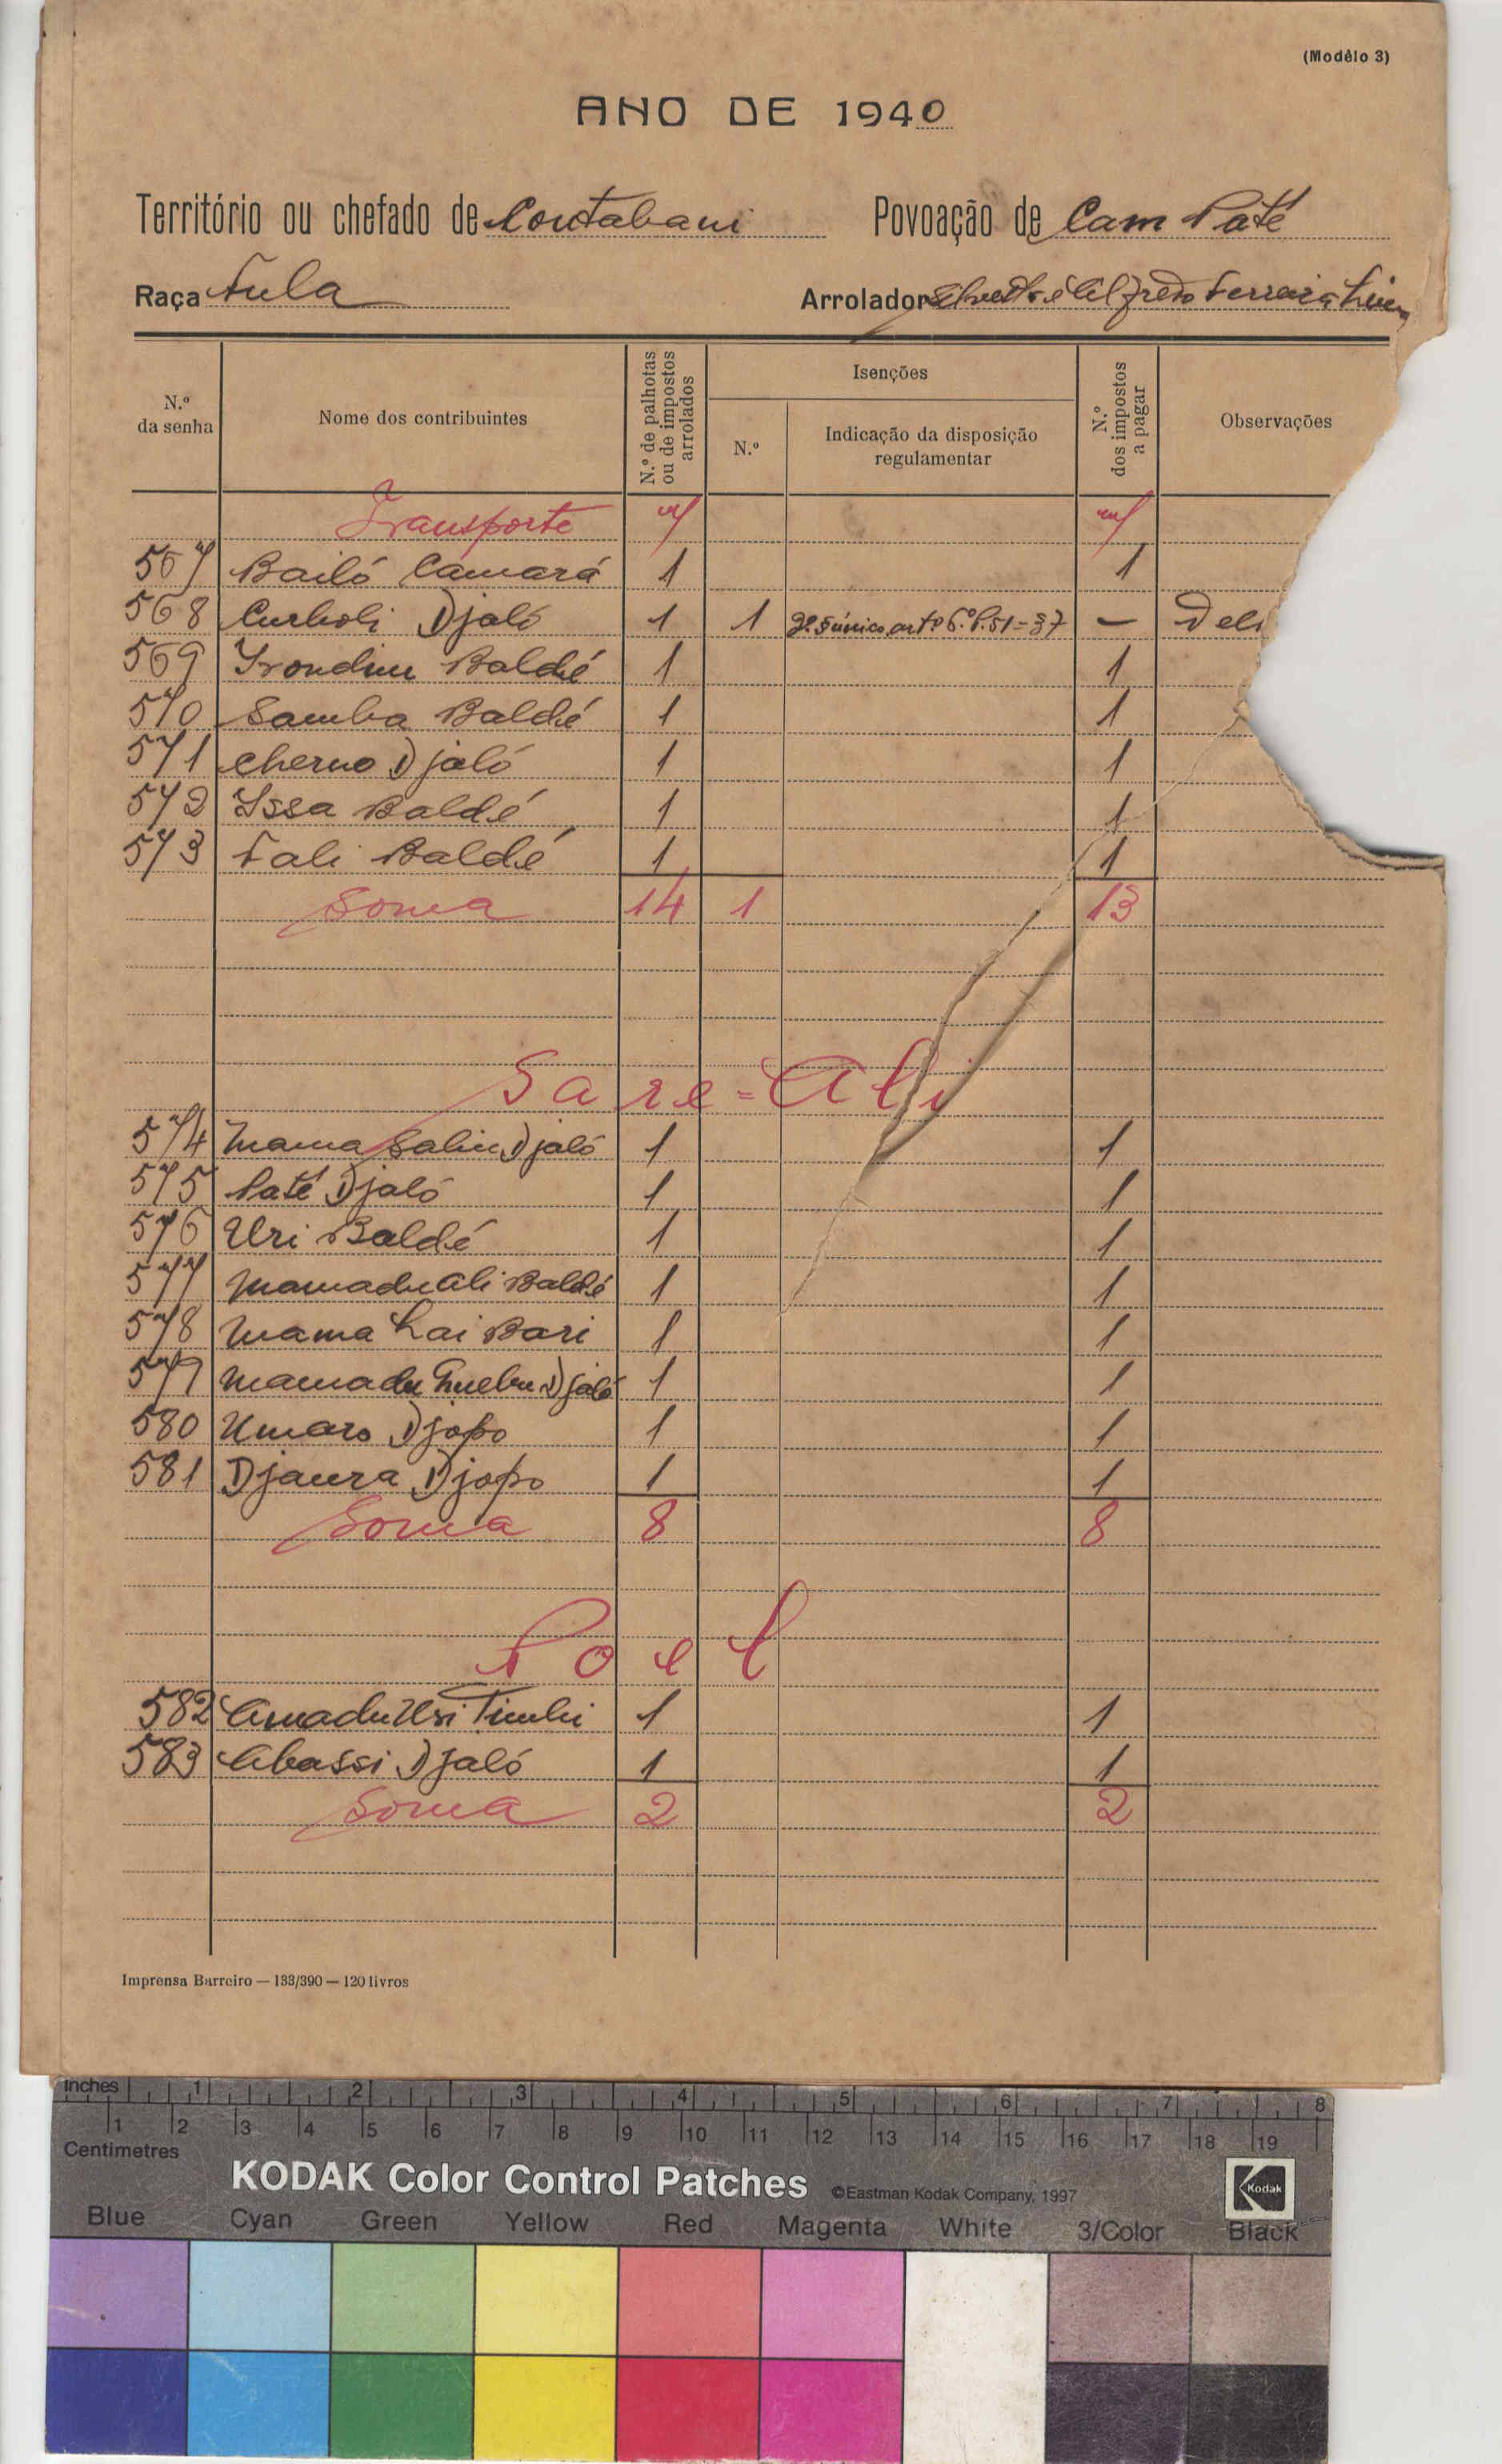 (Modêlo 3)
ANO DE 1940
Território ou chefado de Contabani Povoação de Cam Paté
Raça Fula Arrolador Silvestre Alfredo Ferreira
N.º da senha
Nome dos contribuintes
N.º de palhotas ou de impostos arrolados
Isenções
N.º
Indicação da disposição regulamentar
N.º dos impostos a pagar
Observações
Transporte 7 7
567 Bailó Camará 1 1
568 Djaló 1 1 § único art.º 6.º 51=37 —
569 Baldé 1 1
570 Samba Baldé 1 1
571 Cherno Djaló 1 1
572 Issa Baldé 1 1
573 Fali Baldé 1 1
Soma 14 1 13
Sare-Ali
574 Mama Saliu Djaló 1 1
575 Paté Djaló 1 1
576 Uri Baldé 1 1
577 Mamadu Ali Baldé 1 1
578 Mama Lai Bari 1 1
579 Mamadu Djaló 1 1
580 Umaro Djopo 1 1
581 Djaura Djopo 1 1
Soma 8 8
Poel
582 Amadu Uri Timbi 1 1
583 Abassi Djaló 1 1
Soma 2 2
Imprensa Barreiro — 133/390 — 120 livros
Inches 1 2 3 4 5 6 7 8
1 2 3 4 5 6 7 8 9 10 11 12 13 14 15 16 17 18 19
Centimetres
KODAK Color Control Patches ©Eastman Kodak Company, 1997 Kodak
Blue Cyan Green Yellow Red Magenta White 3/Color Black